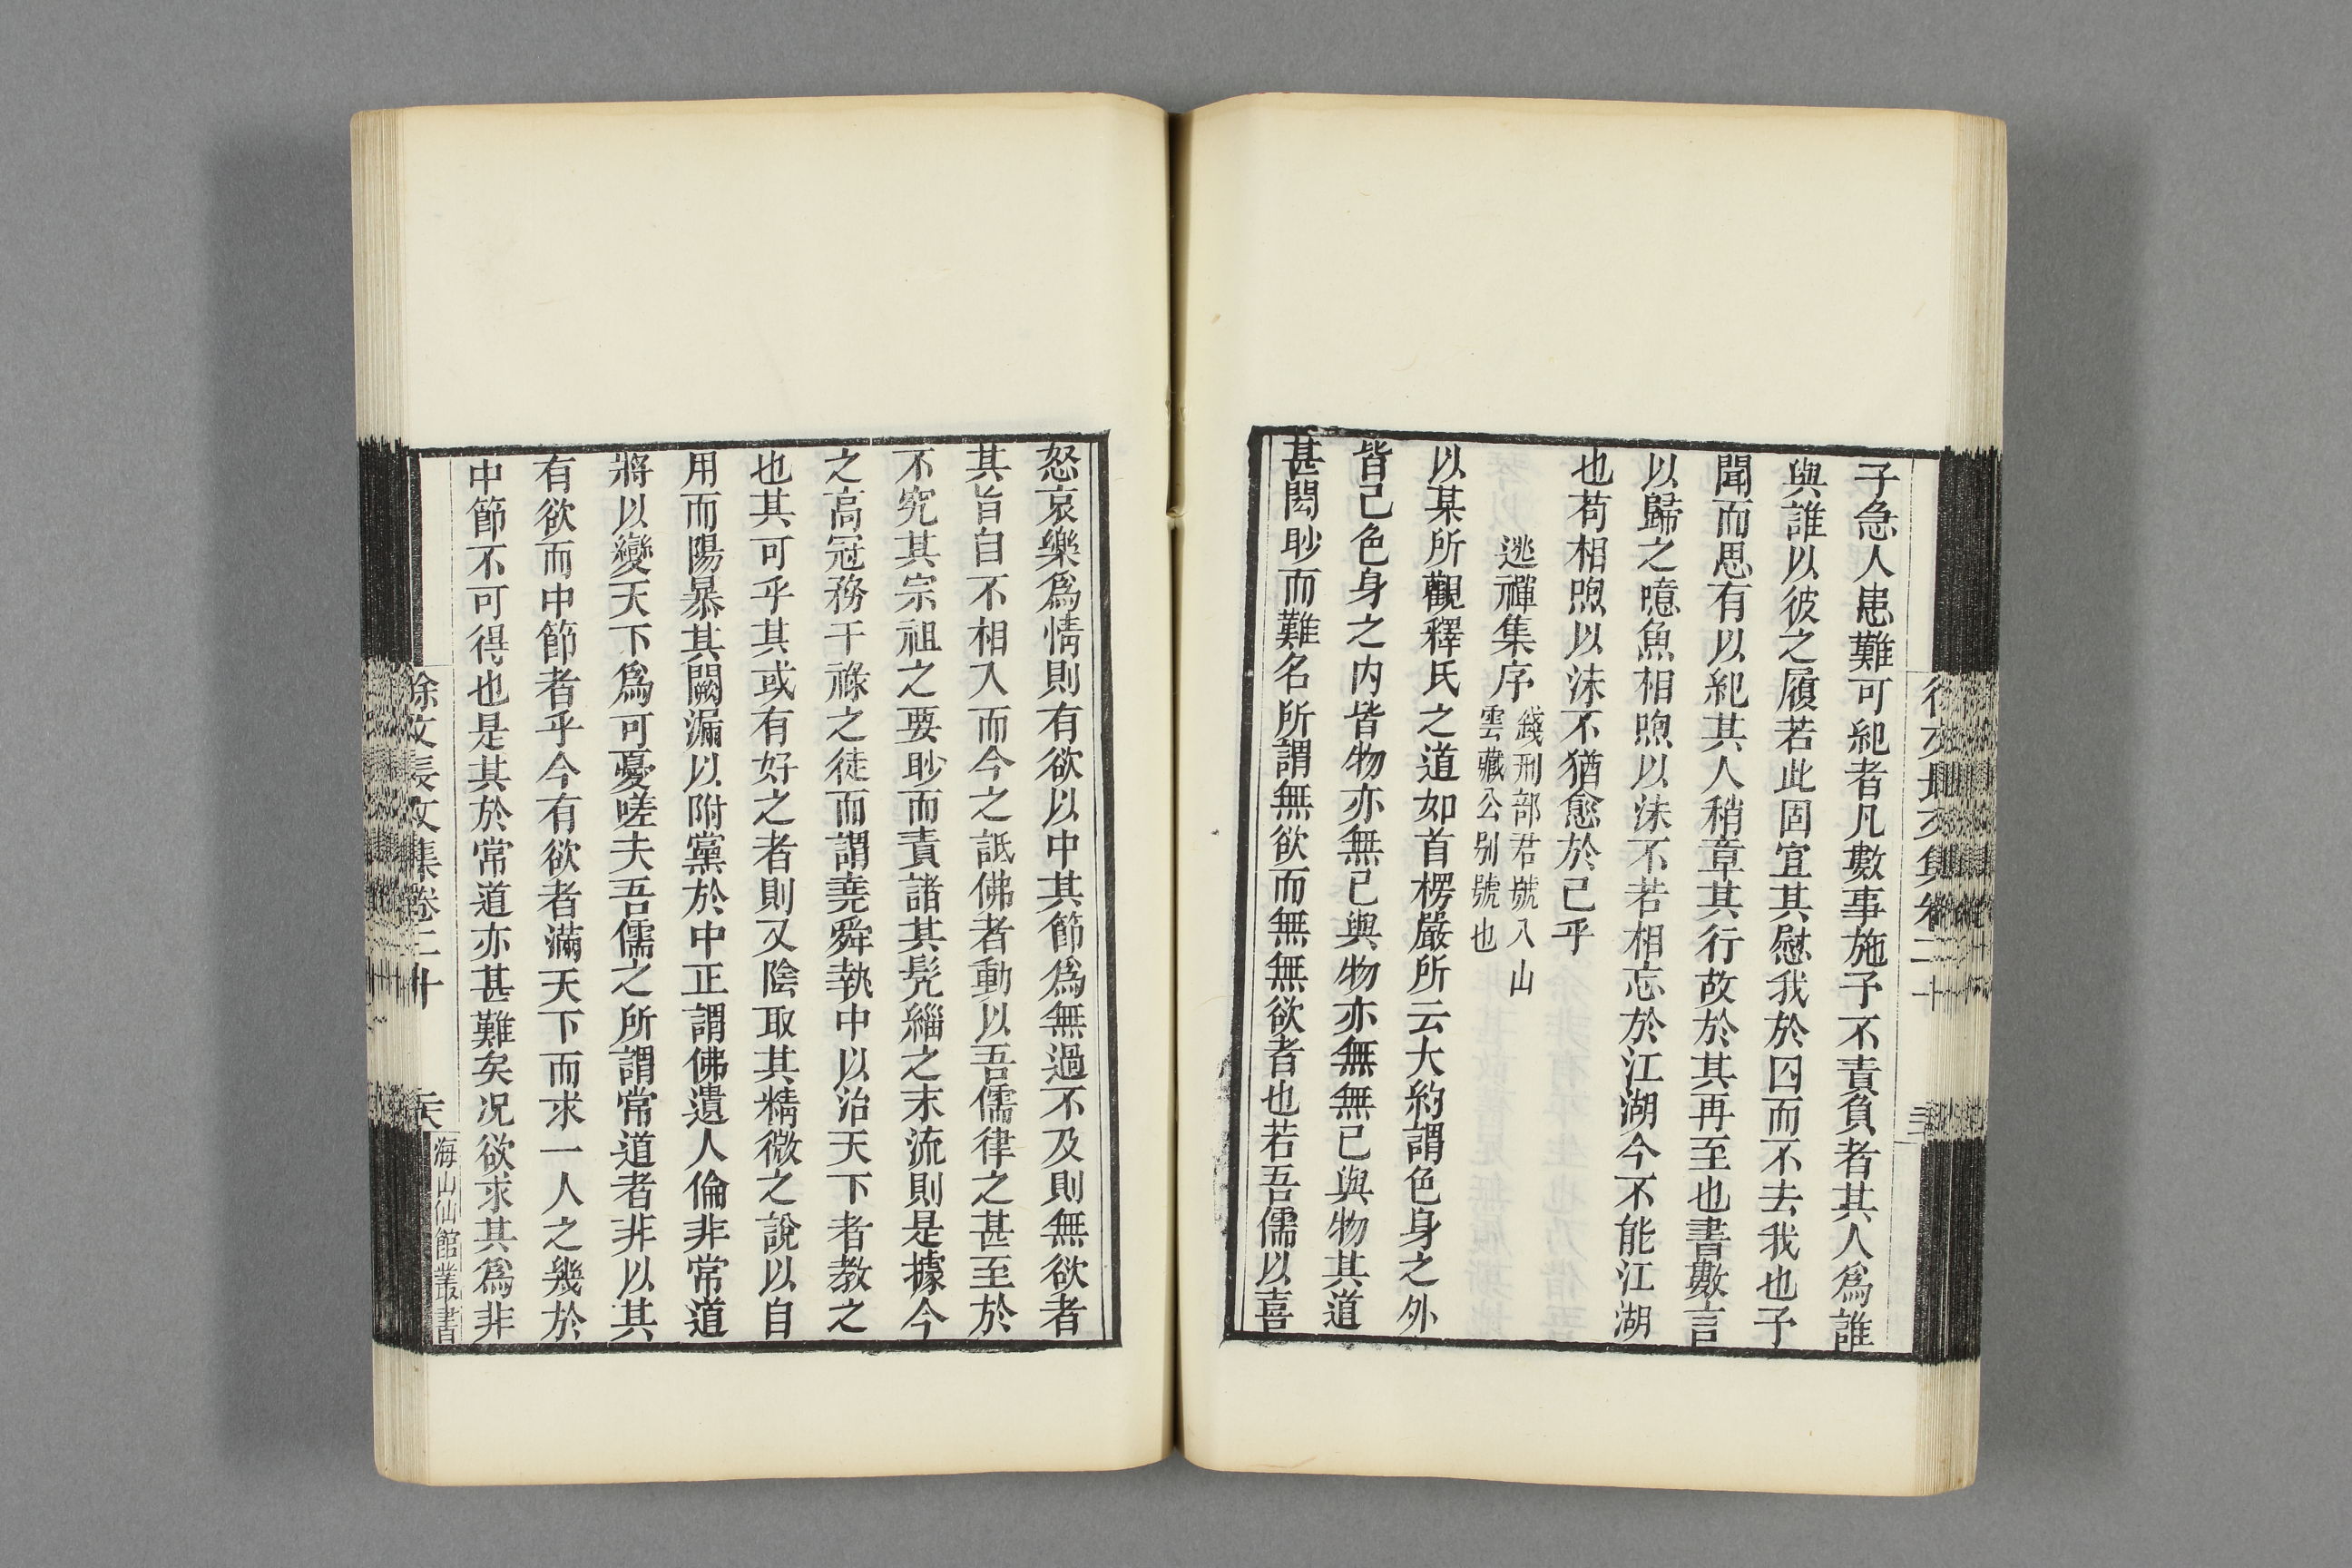 子急人患難可紀者凡數事施予不責負者其人爲誰
與誰以彼之履若此固宜其慰我於囚而不去我也予
聞而思有以紀其人稍章其行故於其再至也書數言
以歸之噫魚相喣以沬不若相忘於江湖今不能江湖
也苟相喣以沬不猶愈於已乎
逃禪集序
錢刑部君號八山
雲藏公别號也
以某所觀釋氏之道如首楞嚴所云大約謂色身之外
皆己色身之内皆物亦無已與物亦無無已與物其道
甚閎眇而難名所謂無欲而無無欲者也若吾儒以喜
怒哀樂爲情則有欲以中其節爲無過不及則無欲者
其旨自不相入而今之詆佛者動以吾儒律之甚至於
不究其宗祖之要眇而責諸其髠緇之末流則是據今
之高冠務干祿之徒而謂堯舜執中以治天下者教之
也其可乎其或有好之者則又陰取其精微之說以自
用而陽暴其闕漏以附黨於中正謂佛遺人倫非常道
將以變天下爲可憂嗟夫吾儒之所謂常道者非以其
有欲而中節者乎今有欲者滿天下而求一人之幾於
中節不可得也是其於常道亦甚難矣况欲求其爲非
徐文長文集卷二十
海山仙館叢書